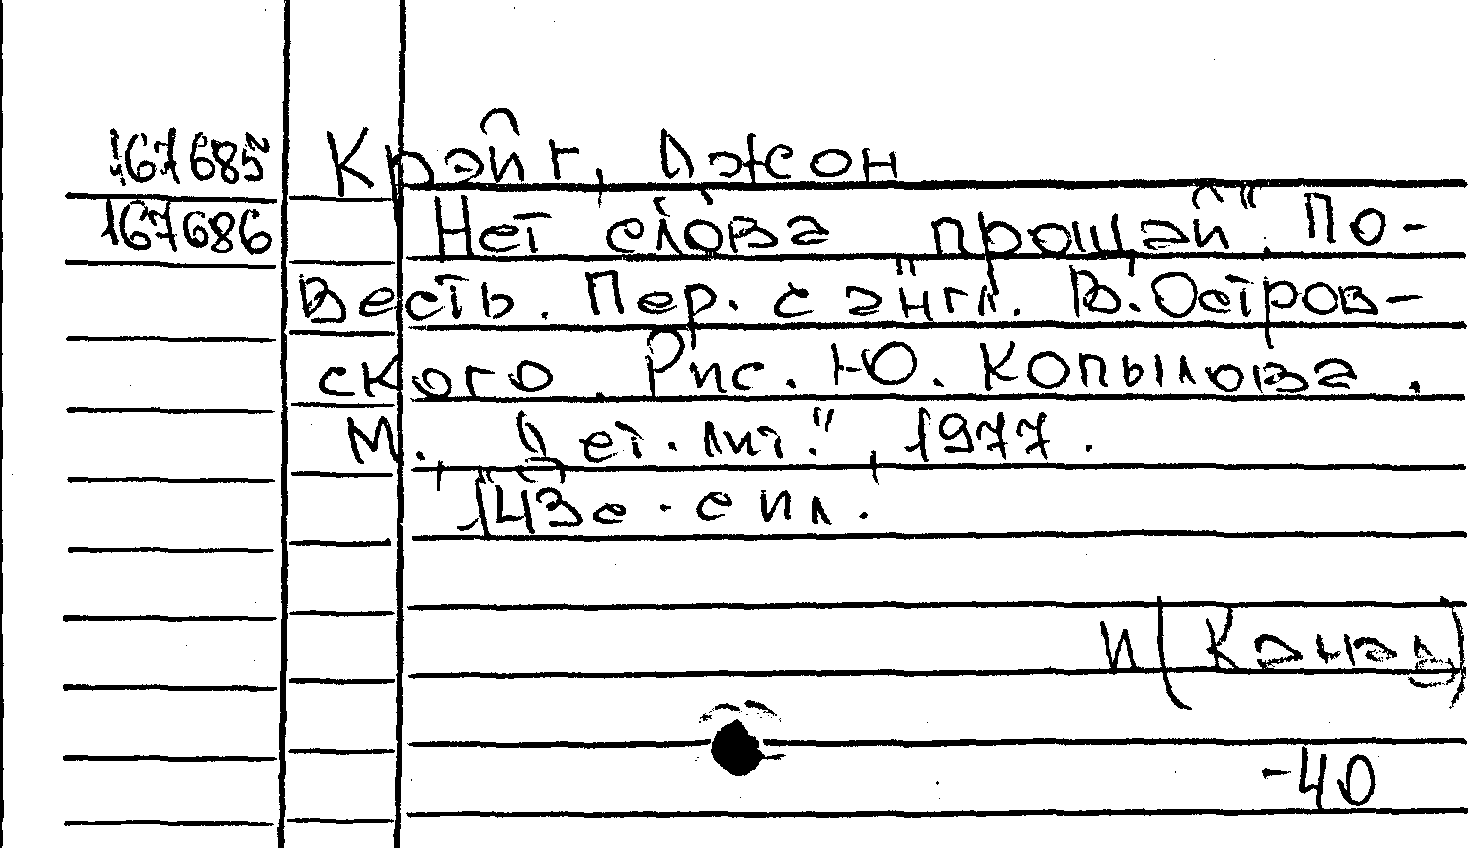 167685 Крэйг, Джон
167686 Нет слова "прощай". По-
весть. Пер. с англ. В. Остров-
ского. Рис. Ю. Копылова.
М., "Дет. лит.", 1977.
143 с. с ил.
И(Канад)
-40